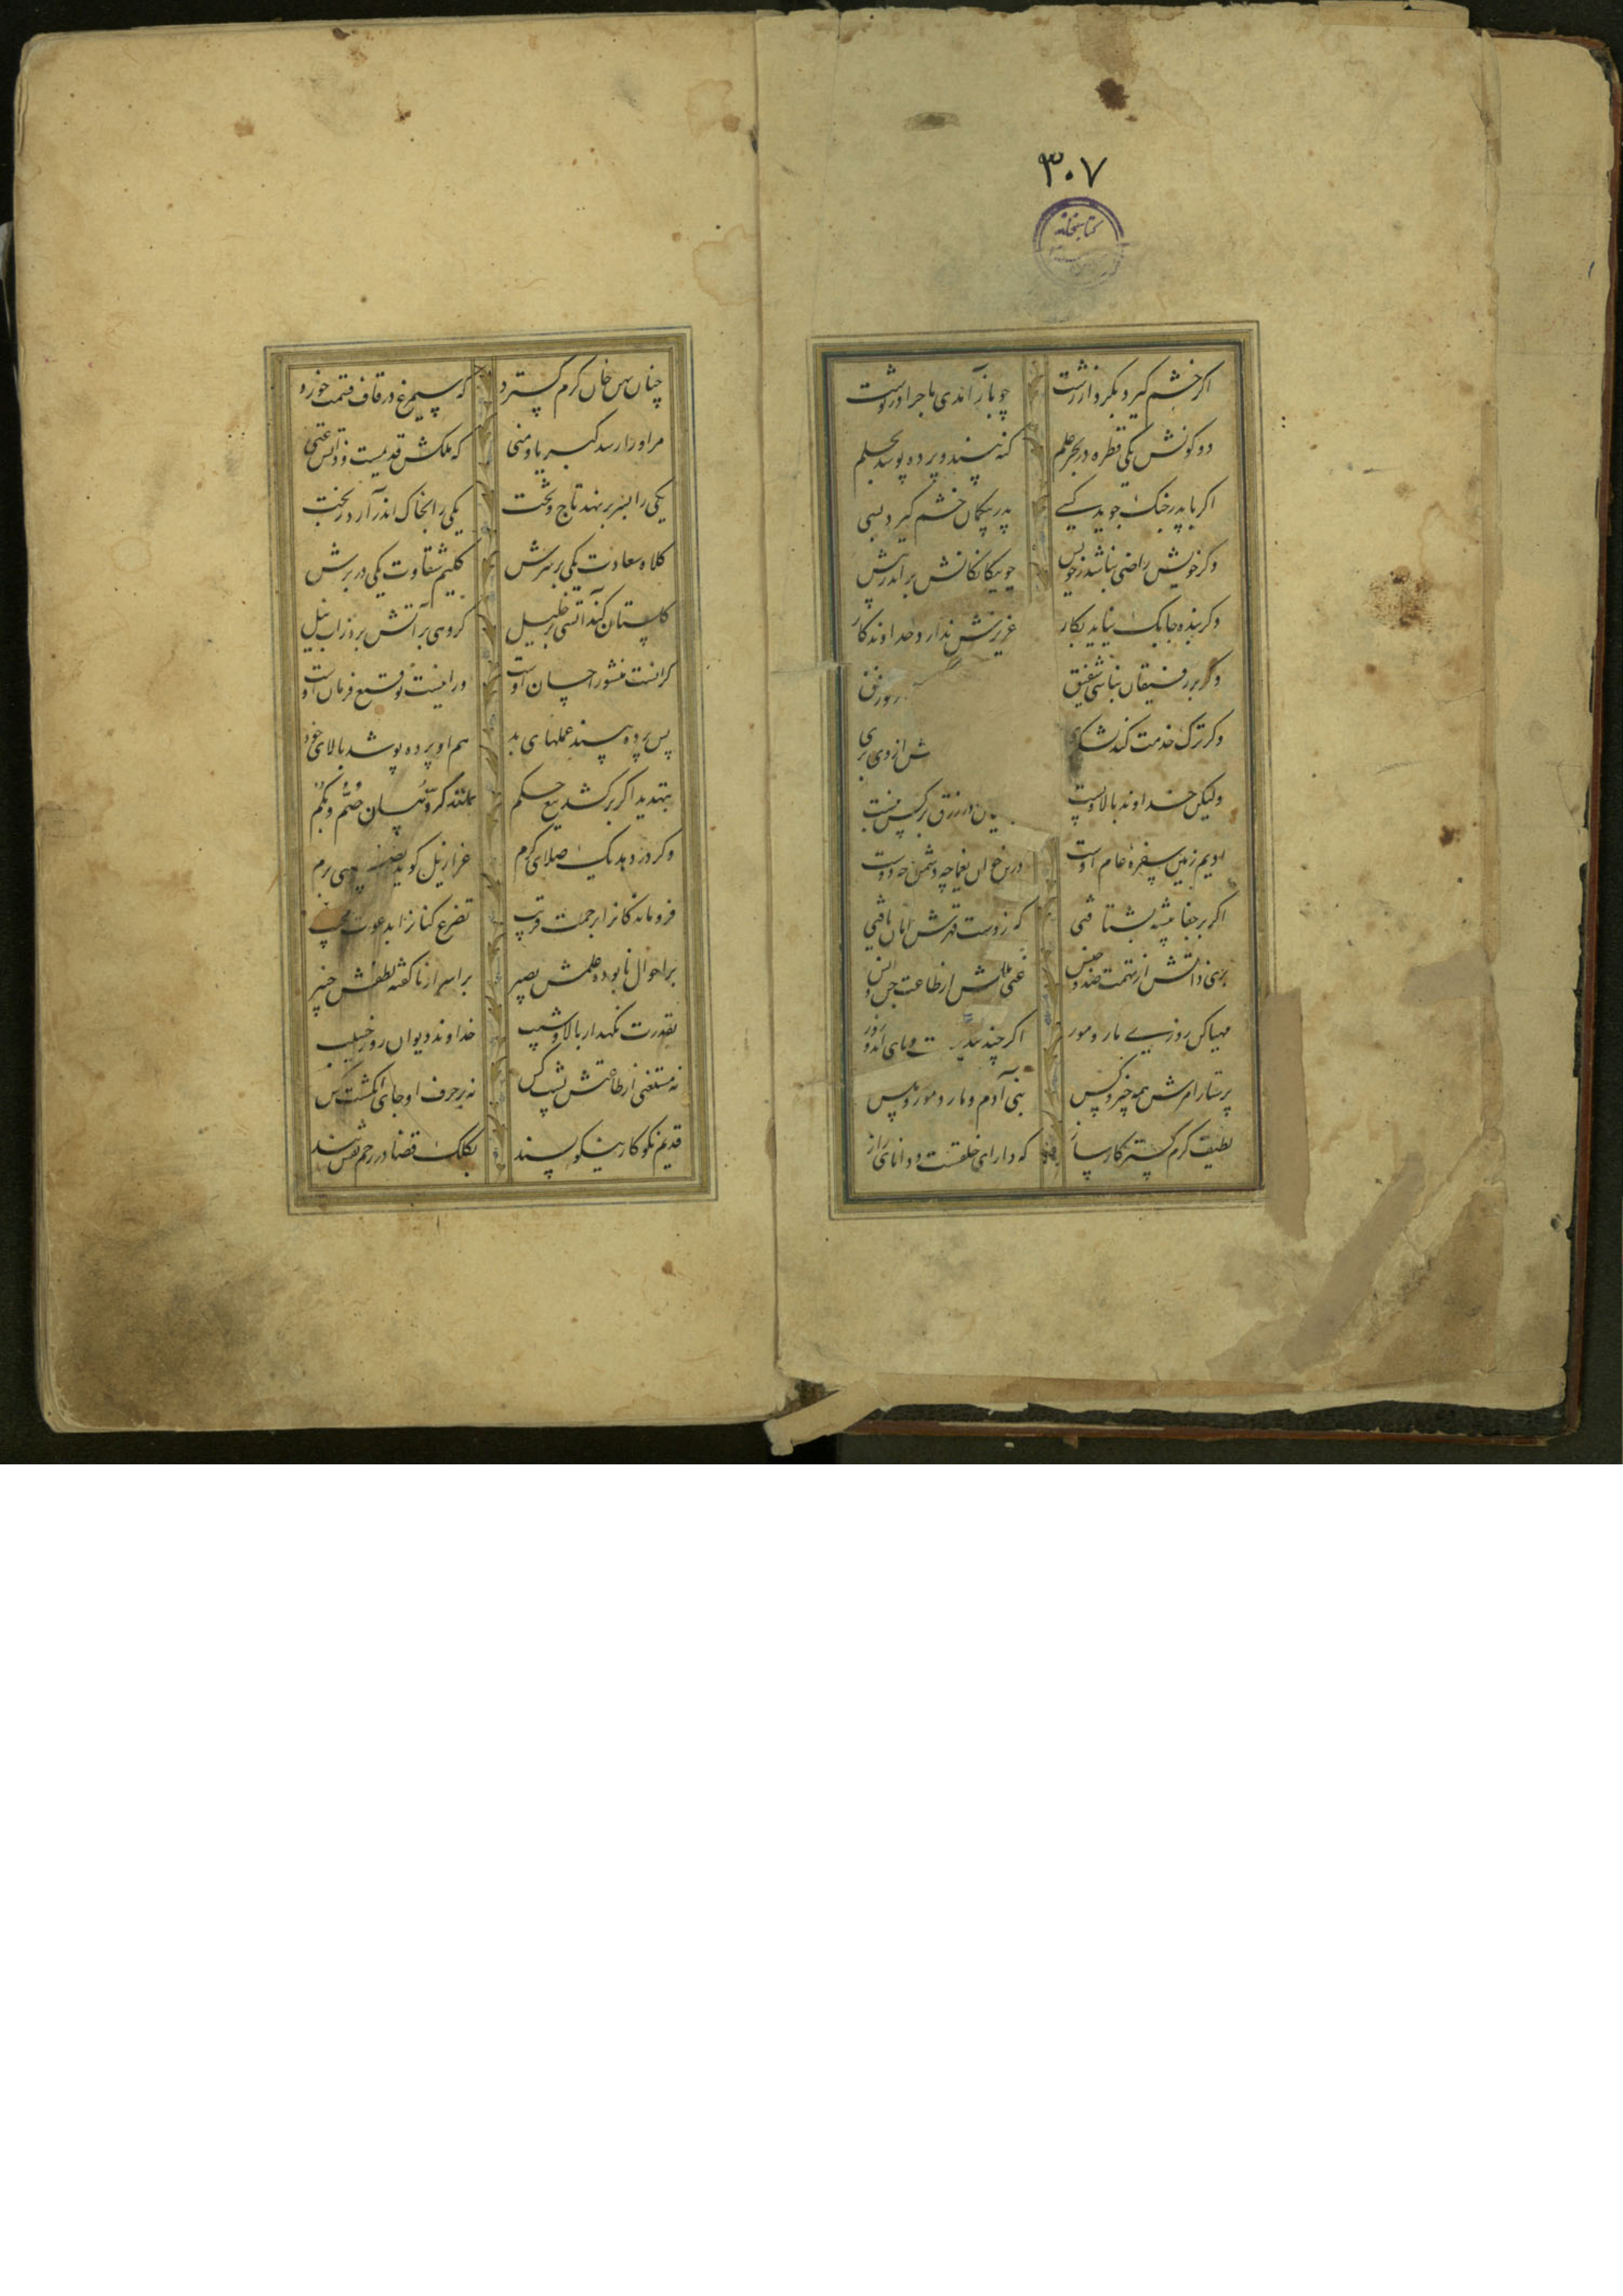 ۳۰۷
کتابخانه
اکر خشم کیرد بکردار زشت چو باز آمدی ماجرا در نوشت
دو کونش یکی قطره در بحر علم کنه بیند و پرده پوشد بحلم
اکر با پدر جنک جوید کسے پدر بیکمان خشم کیرد بسی
وکر خویش راضی نباشد ز خویش چو بیکانکانش براند ز پیش
وکر بنده چابک نیاید بکار عزیزش ندارد خداوندکار
وکر بر رفیقان نباشی شفیق
وکر ترک خدمت کند لشکری ش از وی بری
ولیکن خداوند بالا و پست در رزق بر کس نبست
ادیم زمین سفره عام اوست درین خوان یغما چه دشمن چه دوست
اکر بر جفا پیشه بشتافتی که از دست قهرش امان یافتی
بری ذاتش از تهمت ضد و جنس غنی ملکش از طاعت جن و انس
مهیا کن روزیے مار و مور اکر چند و پای اند و زور
پرستار امرش همه چیز و کس بنی آدم و مار و مور و مکس
لطیف کرم کستر کارساز که دارای خلقست و دانای راز
چنان پهن خوان کرم کسترد که سیمرغ در قاف قسمت خورد
مر او را رسد کبریا و منی که ملکش قدیمست و ذاتش غنی
یکی را بسر برنهد تاج و تخت یکی را بخاک اندر آرد ز تخت
کلاه سعادت یکی بر سرش کلیم شقاوت یکی در برش
کلستان کند آتشی بر خلیل کروهی بر آتش برد ز آب نیل
کر آنست منشور احسان اوست ور اینست توقیع فرمان اوست
پس پرده بیند عملهای بد هم او پرده پوشد بالای خود
بتهدید اکر برکشد تیغ حکم بمانند کروبیان صمٌّ و بکم
وکر در دهد یک صلای کرم عزازیل کوید نصیبی برم
فروماندکانرا برحمت قریب تضرع کنانرا بدعوت مجیب
بر احوال نابوده علمش بصیر بر اسرار ناکفته لطفش خبیر
بقدرت نکهدار بالا و شیب خداوند دیوان روز حسیب
نه مستغنی از طاعتش پشت کس نه بر حرف او جای انکشت کس
قدیم نکوکار نیکو پسند بکلک قضا در رحم نقش بند